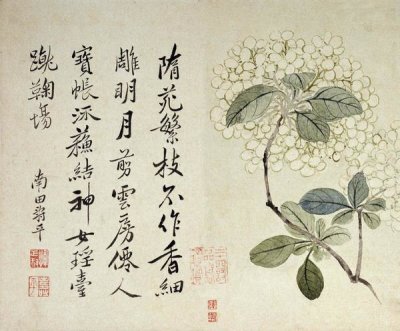 隋苑繁枝不作香細
雕明月剪雲房僊人
寶帳流蘓結神女瑤臺
蹴鞠場
南田壽平